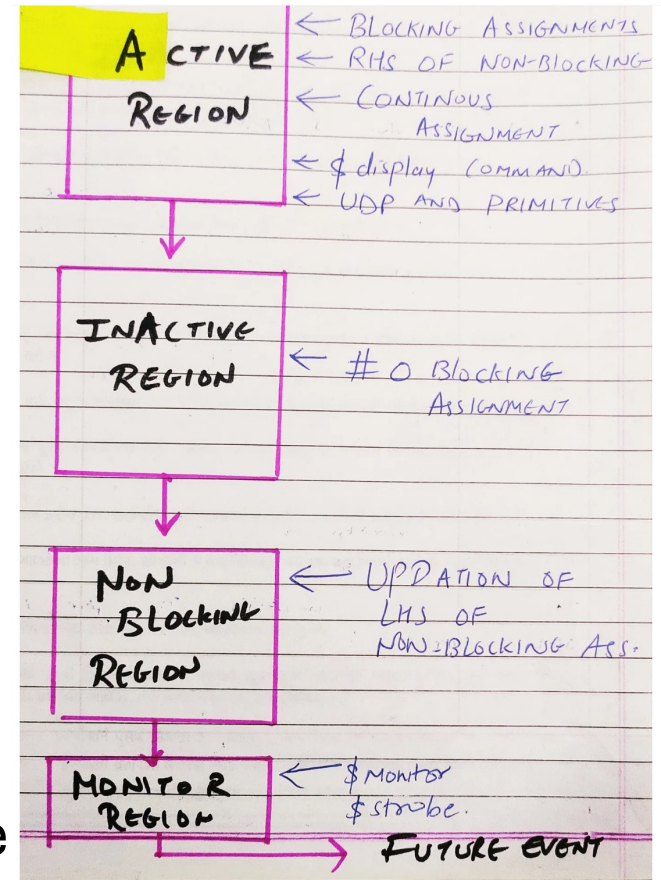 BLOCKING ASSIGNMENTS
ACTIVE
RHS OF NON-BLOCKING
REGION
CONTINOUS
ASSIGNMENT
$ display COMMAND.
UDP AND PRIMITIVES
INACTIVE
REGION
# 0 BlockING
ASSIGNMENT
NON
BLOCKING
REGION
UPDATION OF
LHS OF
NON-BLOCKING ASS.
MONITOR
REGION
$ Monitor
$ strobe.
e
FUTURE EVENT